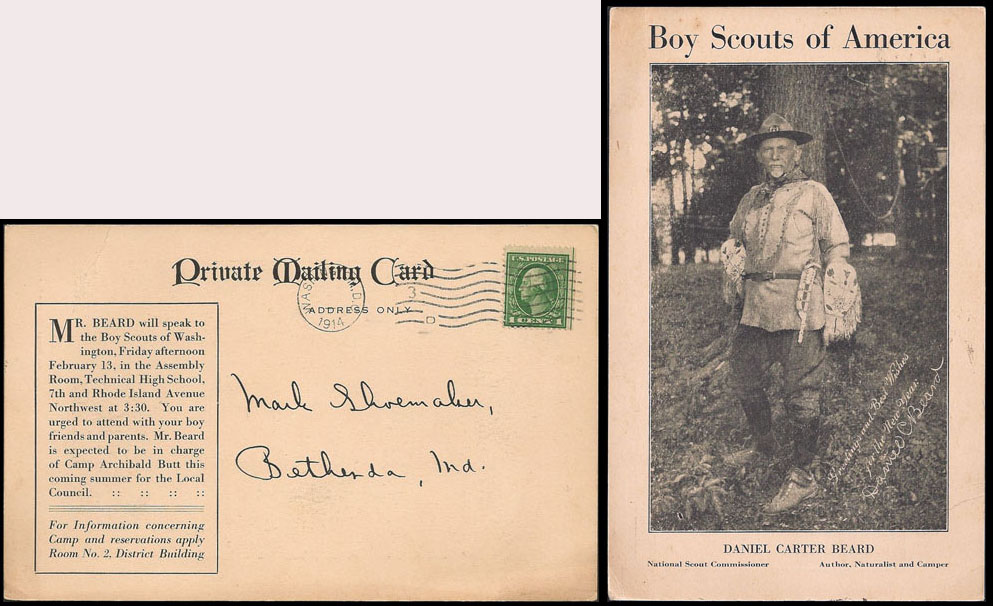 Private Mailing Card
ADDRESS ONLY
WASH
D.C.
3
1914
D
U.S. POSTAGE
1 CENT 1
MR. BEARD will speak to
the Boy Scouts of Wash-
ington, Friday afternoon
February 13, in the Assembly
Room, Technical High School,
7th and Rhode Island Avenue
Northwest at 3:30. You are
urged to attend with your boy
friends and parents. Mr. Beard
is expected to be in charge
of Camp Archibald Butt this
coming summer for the Local
Council. :: :: :: ::
For Information concerning
Camp and reservations apply
Room No. 2, District Building
Mark Shoemaker,
Bethesda, Md.
Boy Scouts of America
Greeting and Best Wishes
for the New Year
Daniel C Beard
DANIEL CARTER BEARD
National Scout Commissioner Author, Naturalist and Camper